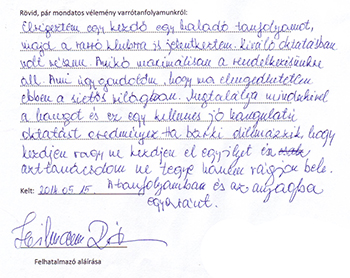 Rövid, pár mondatos vélemény varrótanfolyamunkról:
Elvégeztem egy kezdő egy haladó tanfolyamot,
majd a varró klubra is jelentkeztem. Kiváló oktatásban
volt részem. Anikó maximálisan a rendelkezésünkre
áll. Ami úgy gondolom, hogy ma elengedhetetlen
ebben a sietős világban. Megtalálja mindenkivel
a hangot és ez egy kellemes jó hangulatú
oktatást eredményez. Ha bárki dilmázik, hogy
kezdjen vagy ne kezdjen el egyéljét ez
azt tanácsolom ne tegye hanem vágjon bele.
Kelt: 2014.05.15. A tanfolyamban és az anyagba
egyaránt.
Felhatalmazó aláírása